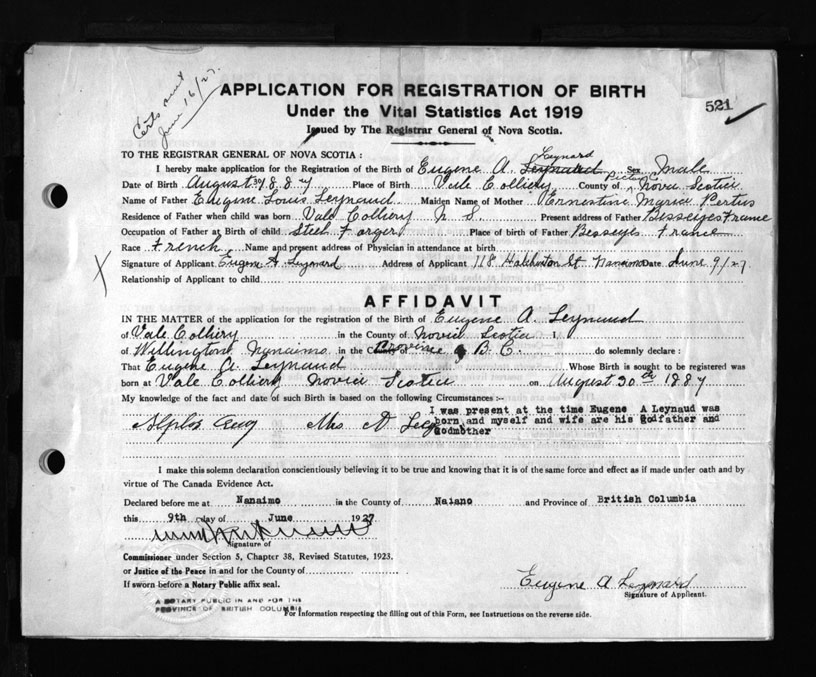 Certs sent
June 16/27.
APPLICATION FOR REGISTRATION OF BIRTH
521
Under the Vital Statistics Act 1919
Issued by The Registrar General of Nova Scotia.
TO THE REGISTRAR GENERAL OF NOVA SCOTIA:
Leynard
I hereby make application for the Registration of the Birth of Eugene A. Leynaud Sex Male
Pictou
Date of Birth August Place of Birth Vale Colliery County of Nova Scotia
Name of Father Eugene Louis Leynaud Maiden Name of Mother Ernestine Maria
Residence of Father when child was born Vale Colliery N. S. Present address of Father Besseges France
Occupation of Father at Birth of child Steel Forger Place of birth of Father Besseges France
Race French Name and present address of Physician in attendance at birth
Signature of Applicant Eugene A. Leynard Address of Applicant 118 Haliburton St Nanaimo Date June 9/27.
Relationship of Applicant to child
AFFIDAVIT
IN THE MATTER of the application for the registration of the Birth of Eugene A. Leynaud
of Vale Colliery in the County of Novia Scotia I
of Wellington Nanaimo in the County of Province of B. C. do solemnly declare :
That Eugene A Leynaud Whose Birth is sought to be registered was
born at Vale Colliery Novia Scotia on August 30th 1887
My knowledge of the fact and date of such Birth is based on the following Circumstances :-
I was present at the time Eugene A Leynaud was
Mrs A born and myself and wife are his Godfather and
Godmother
I make this solemn declaration conscientiously believing it to be true and knowing that it is of the same force and effect as if made under oath and by
virtue of The Canada Evidence Act.
Declared before me at Nanaimo in the County of Naiano and Province of British Columbia
this 9th day of June 1927
Signature of
Commissioner under Section 5, Chapter 38, Revised Statutes, 1923.
or Justice of the Peace in and for the County of
If sworn before a Notary Public affix seal.
Eugene A Leynard
Signature of Applicant.
A NOTARY PUBLIC IN AND FOR THE
PROVINCE OF BRITISH COLUMBIA
For Information respecting the filling out of this Form, see Instructions on the reverse side.